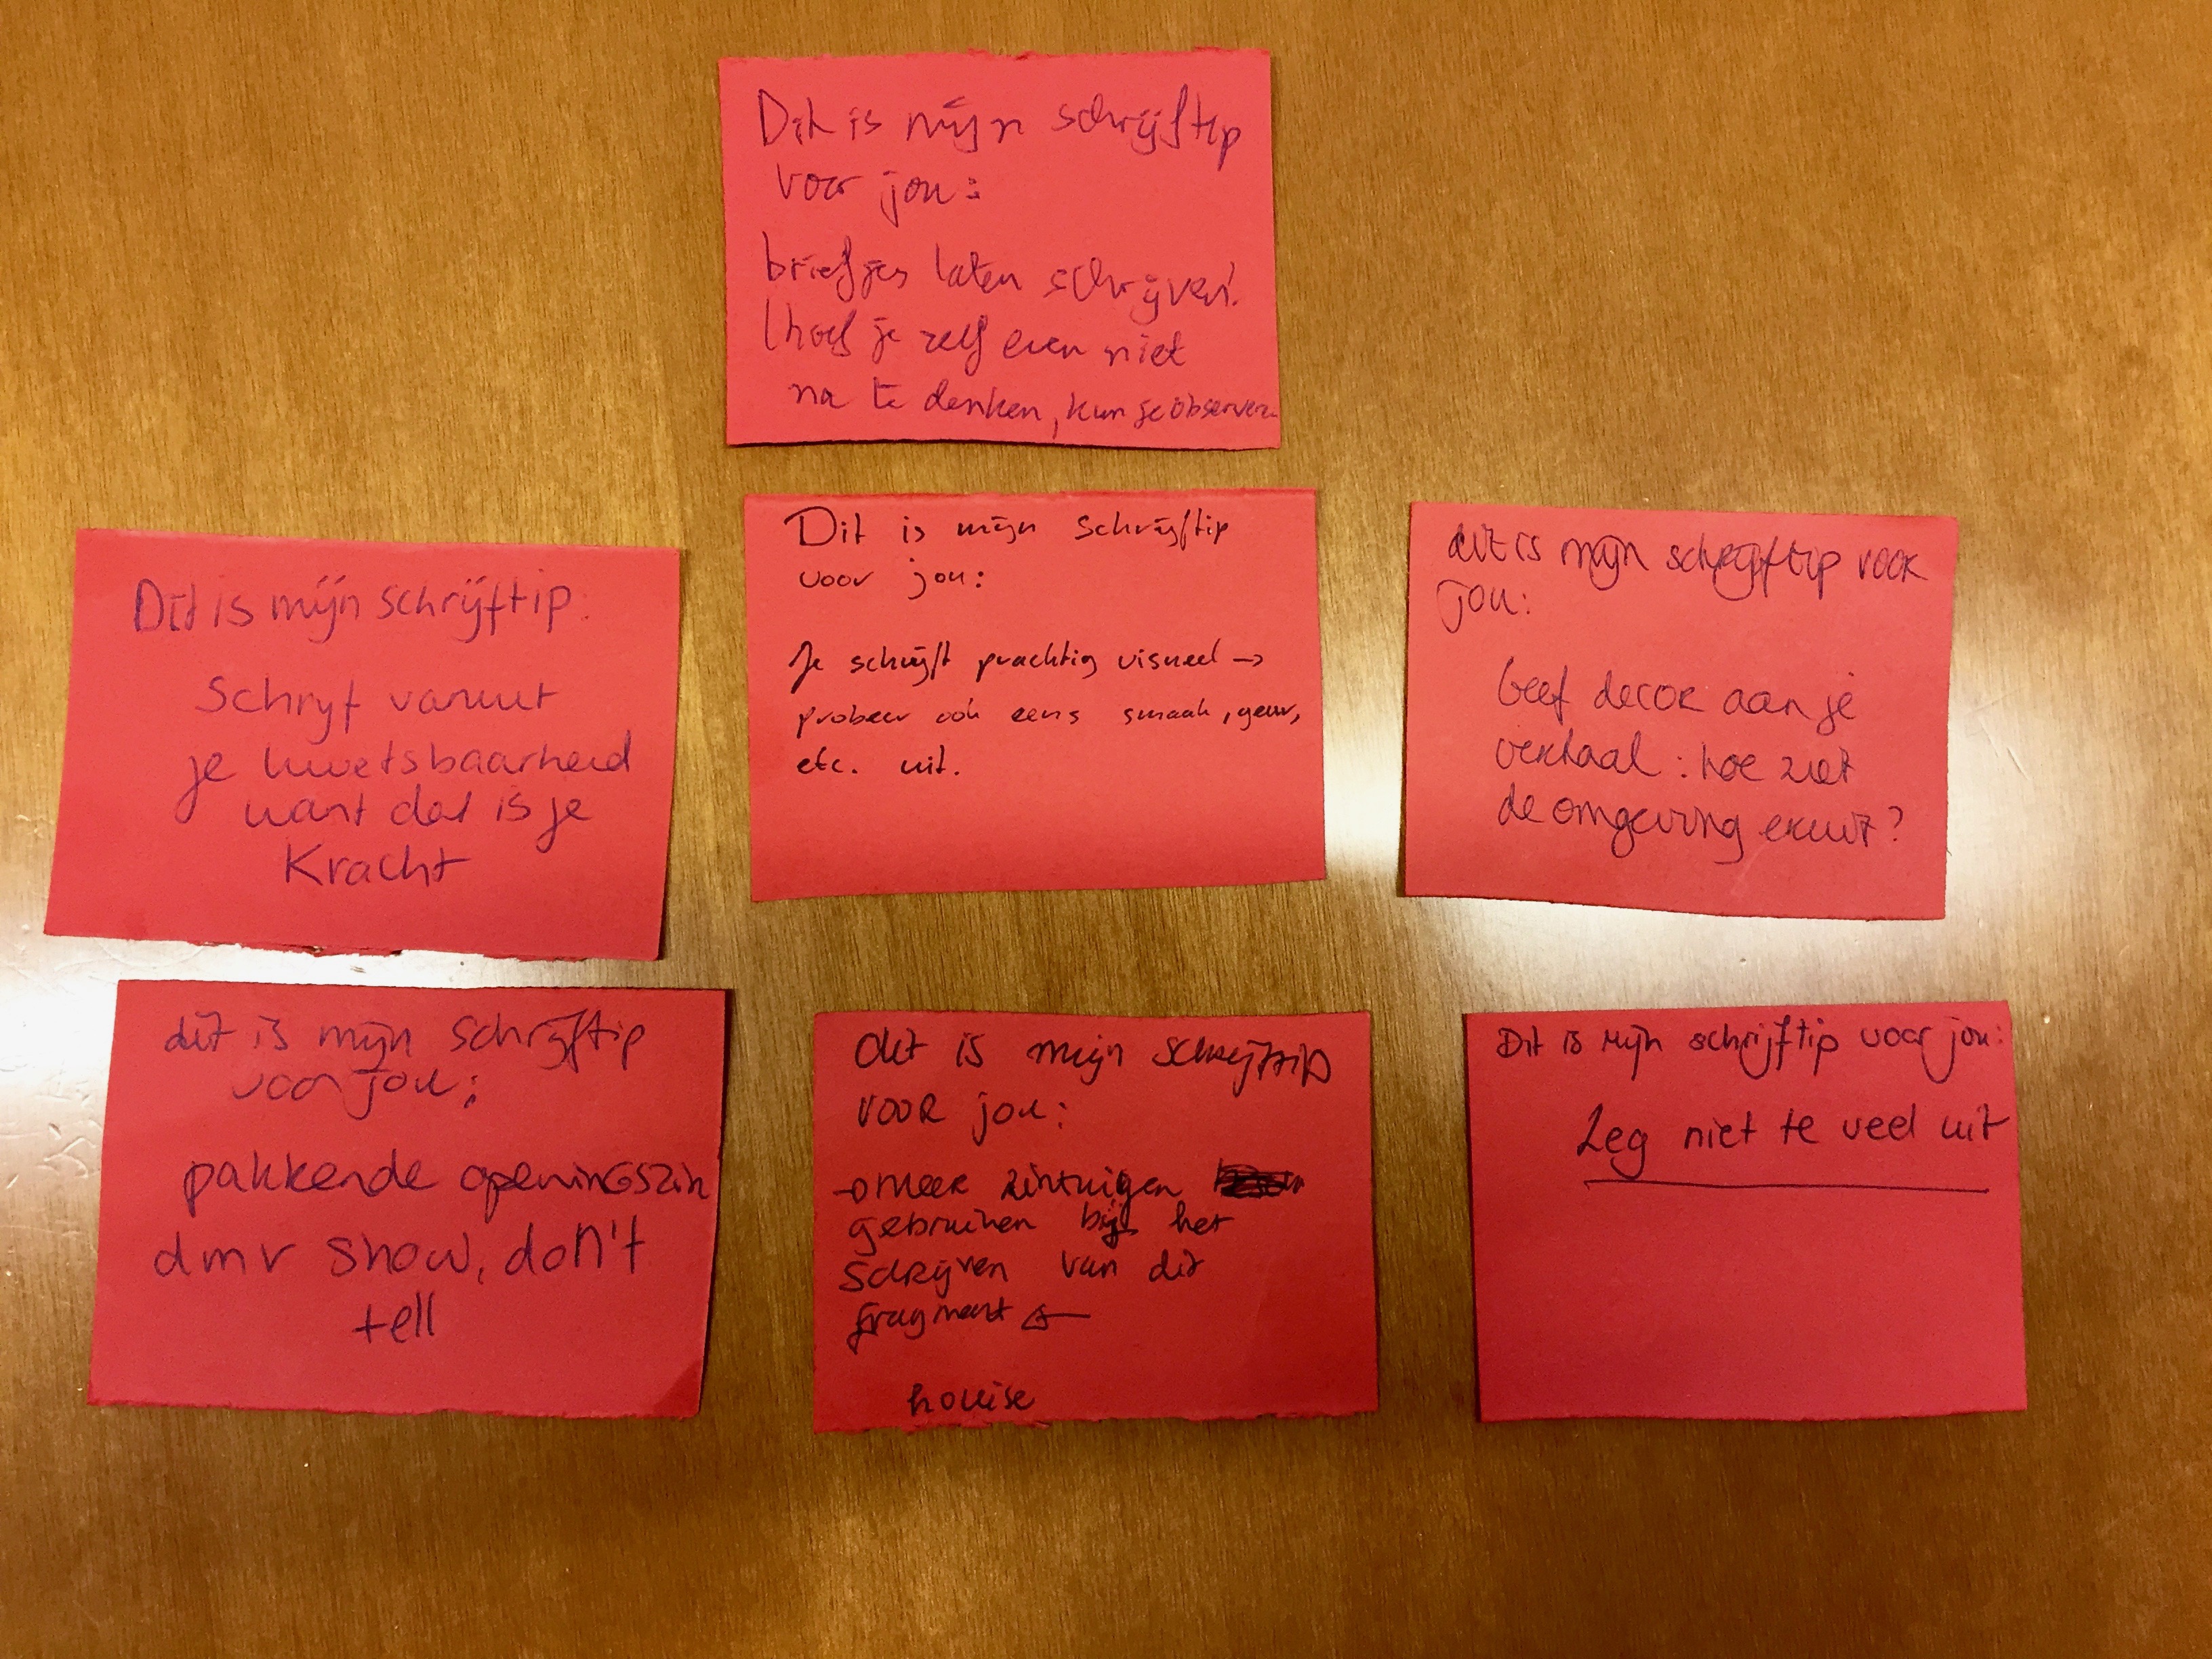 Dit is mijn schrijftip
voor jou:
briefjes laten schrijven!
(hoef je zelf even niet
na te denken, kun je observeren
Dit is mijn schrijftip:
Schrijf vanuit
je kwetsbaarheid
want dat is je
Kracht
Dit is mijn schrijftip
voor jou:
Je schrijft prachtig visueel →
probeer ook eens smaak, geur,
etc. uit.
dit is mijn schrijftip voor
jou:
Geef decor aan je
verhaal: hoe ziet
de omgeving eruit?
dit is mijn schrijftip
voor jou:
pakkende openingszin
dmv show, don't
tell
dit is mijn schrijftip
voor jou:
→ meer zintuigen
gebruiken bij het
schrijven van dit
fragment ←
Dit is mijn schrijftip voor jou:
Leg niet te veel uit